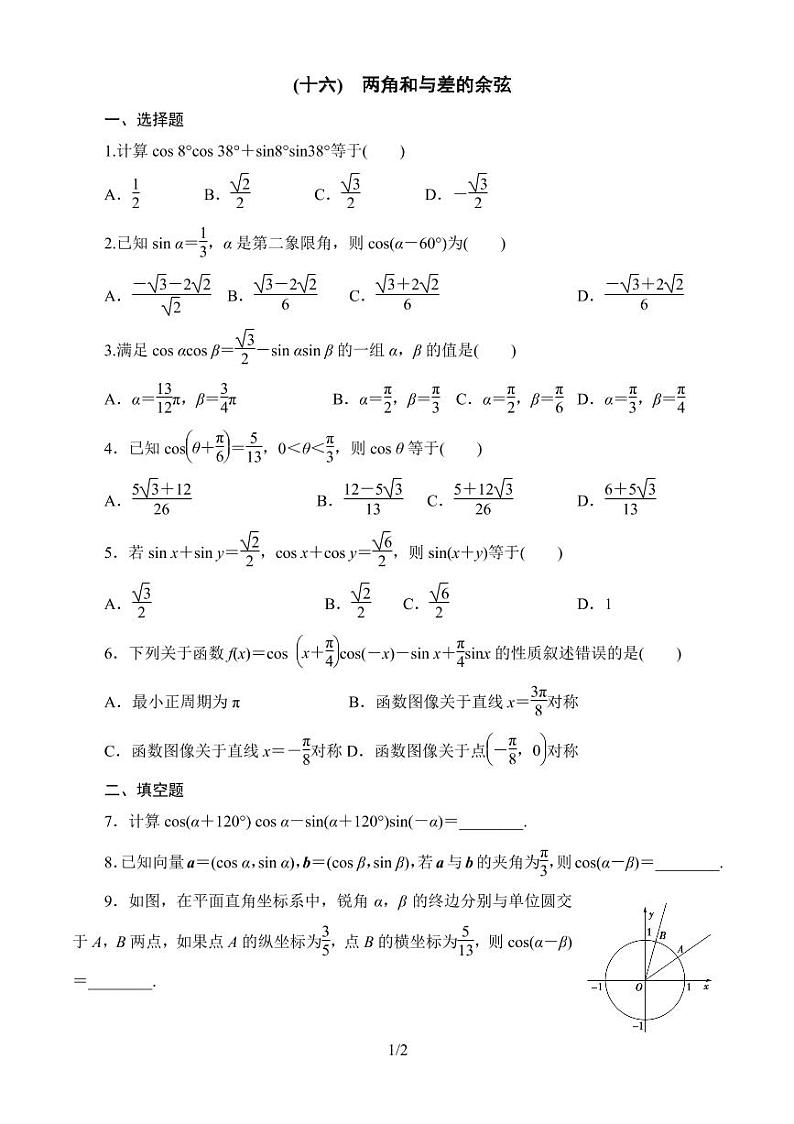 (十六)　两角和与差的余弦
一、选择题
1.计算 cos 8°cos 38°＋sin8°sin38°等于(　　)
A．1/2　B．√2/2　C．√3/2　D．－√3/2
2.已知 sin α＝1/3，α 是第二象限角，则 cos(α－60°)为(　　)
A．(－√3－2√2)/√2　B．(√3－2√2)/6　C．(√3＋2√2)/6　D．(－√3＋2√2)/6
3.满足 cos αcos β＝√3/2－sin αsin β 的一组 α，β 的值是(　　)
A．α＝13/12π，β＝3/4π　B．α＝π/2，β＝π/3　C．α＝π/2，β＝π/6　D．α＝π/3，β＝π/4
4．已知 cos(θ＋π/6)＝5/13，0＜θ＜π/3，则 cos θ 等于(　　)
A．(5√3＋12)/26　B．(12－5√3)/13　C．(5＋12√3)/26　D．(6＋5√3)/13
5．若 sin x＋sin y＝√2/2，cos x＋cos y＝√6/2，则 sin(x＋y)等于(　　)
A．√3/2　B．√2/2　C．√6/2　D．1
6．下列关于函数 f(x)＝cos (x＋π/4)cos(－x)－sin x＋π/4sinx 的性质叙述错误的是(　　)
A．最小正周期为 π　B．函数图像关于直线 x＝3π/8对称
C．函数图像关于直线 x＝－π/8对称 D．函数图像关于点(－π/8，0)对称
二、填空题
7．计算 cos(α＋120°) cos α－sin(α＋120°)sin(－α)＝________.
8．已知向量 a＝(cos α，sin α)，b＝(cos β，sin β)，若 a 与 b 的夹角为π/3，则 cos(α－β)＝________.
9．如图，在平面直角坐标系中，锐角 α，β 的终边分别与单位圆交
于 A，B 两点，如果点 A 的纵坐标为3/5，点 B 的横坐标为5/13，则 cos(α－β)
＝________.
y
1 B
A
－1 O 1 x
－1
1/2